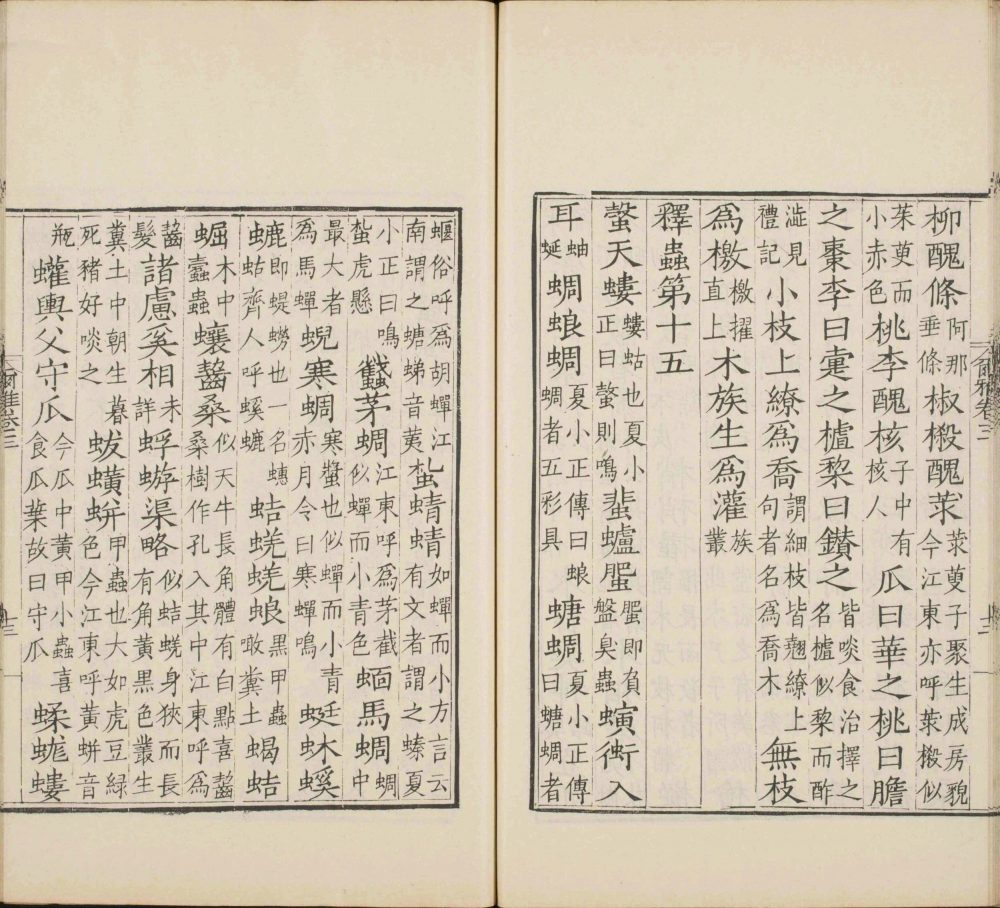 柳醜條阿那垂條椒樧醜莍莍萸子聚生成房貌今江東亦呼莍樧似
茱萸而小赤色桃李醜核子中有核人瓜曰華之桃曰膽
之棗李曰疐之樝棃曰鑽之皆啖食治擇之名樝似棃而酢
澁見禮記小枝上繚爲喬謂細枝皆翹繚上句者名爲喬木無枝
爲檄檄擢直上木族生爲灌族叢
釋蟲第十五
螜天螻螻蛄也夏小正曰螜則鳴蜚蠦蜰蜰即負盤臭蟲螾衝入
耳蚰蜒蜩蜋蜩夏小正傳曰蜋蜩者五彩具螗蜩夏小正傳曰螗蜩者
蝘俗呼爲胡蟬江南謂之螗蛦音荑蚻蜻蜻如蟬而小方言云有文者謂之螓夏
小正曰鳴蚻虎懸蠽茅蜩江東呼爲茅截似蟬而小青色蝒馬蜩蜩中
最大者爲馬蟬蜺寒蜩寒螿也似蟬而小青赤月令曰寒蟬鳴蜓蚞螇
螰即蝭蟧也一名蟪蛄齊人呼螇螰蛣蜣蜣蜋黑甲蟲噉糞土蝎蛣
䖦木中蠹蟲蠰齧桑似天牛長角體有白點喜齧桑樹作孔入其中江東呼爲
齧髮諸慮奚相未詳蜉蝣渠略似蛣蜣身狹而長有角黄黑色叢生
糞土中朝生暮死豬好啖之蛂蟥蛢甲蟲也大如虎豆緑色今江東呼黄蛢音
瓶蠸輿父守瓜今瓜中黄甲小蟲喜食瓜葉故曰守瓜蝚蛖螻